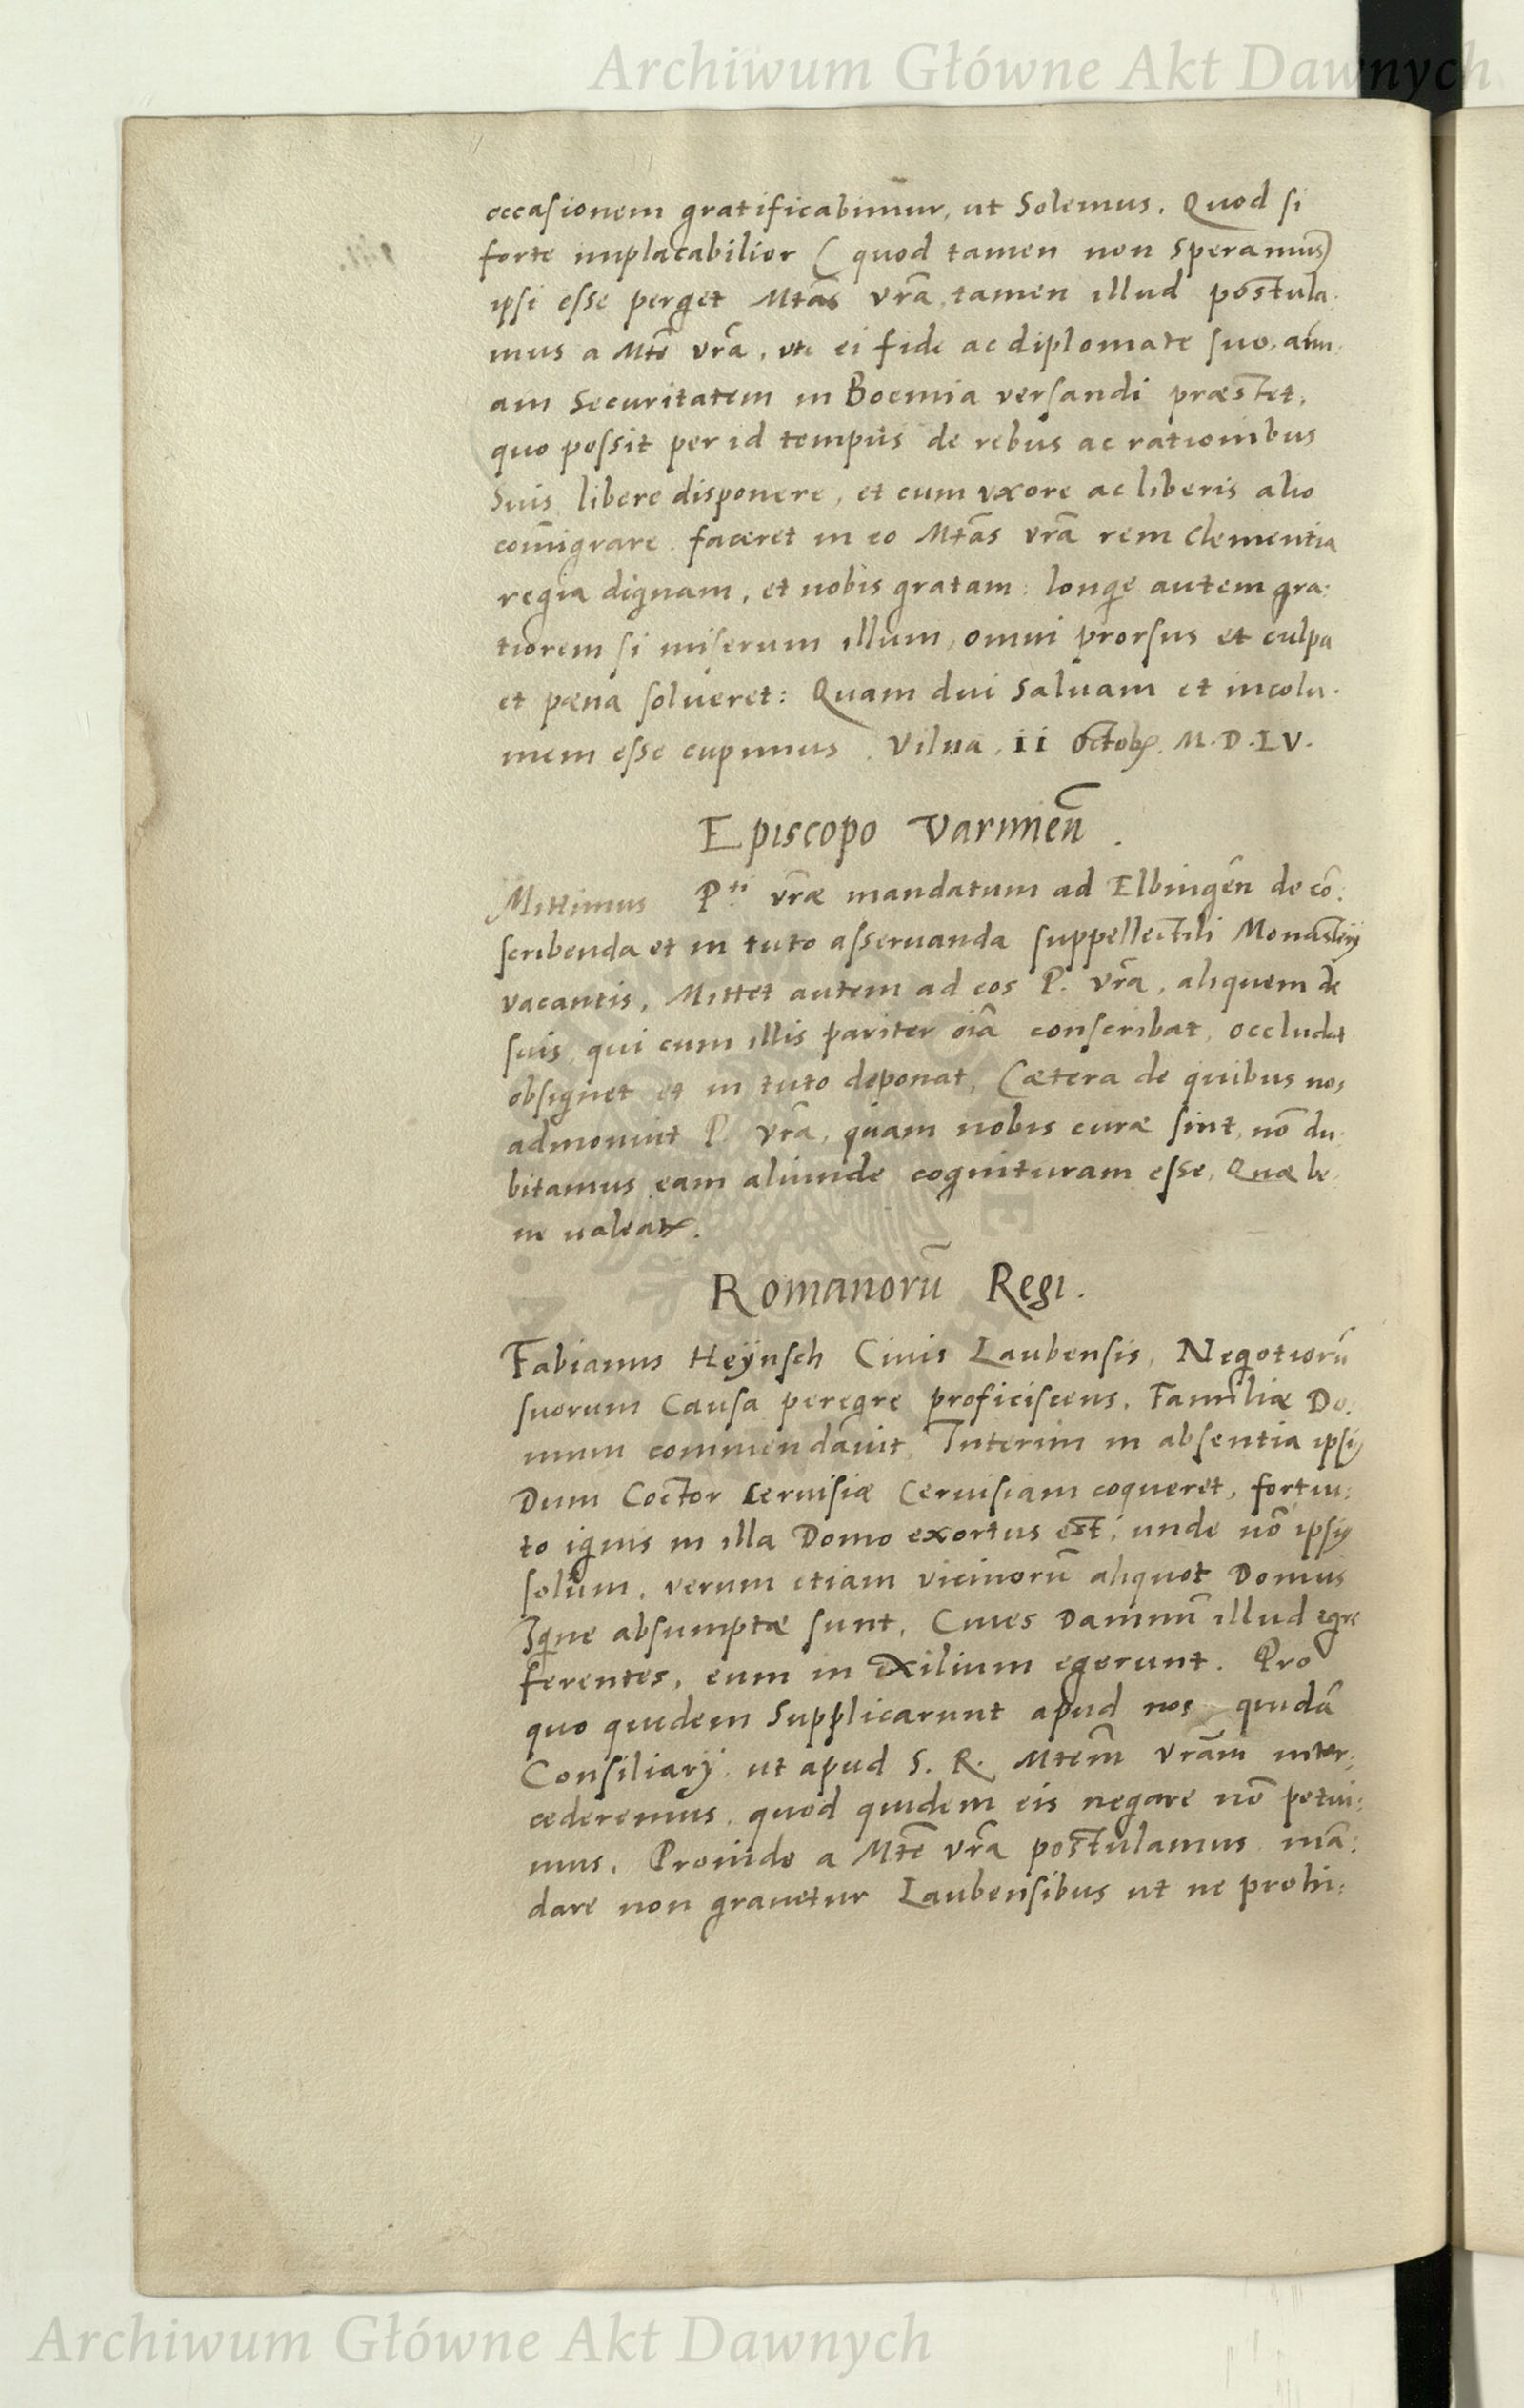 Archiwum Główne Akt Dawnych
occasionem gratificabimur, ut Solemus. Quod si
forte implacabilior (quod tamen non Speramus)
ipsi esse perget Mtās vrā, tamen illud postula:
mus a Mtē vrā, uti ei fide ac diplomate suo,
am Securitatem in Boemia versandi præstet,
quo possit per id tempus de rebus ac rationibus
Suis libere disponere, et cum vxore ac liberis alio
com̄igrare. faceret in eo Mtās vrā rem Clementia
regia dignam, et nobis gratam: longe autem gra:
tiorem si miserum illum, omni prorsus et culpa
et pæna solueret: Quam diu Saluam et incolu:
mem esse cupimus. Vilna, ii octob. M.D.LV.
Episcopo Varmien̄.
Mittimus P.ti vræ mandatum ad Elbingēn de cō:
scribenda et in tuto asseruanda suppellectili Monasterij
vacantis, Mittet autem ad eos P. vrā, aliquem de
suis, qui cum illis pariter oīa conscribat, occludat
obsignet et in tuto deponat, Cætera de quibus nos
admonuit P. vrā, quam nobis curæ sint, nō du:
bitamus eam aliunde cognituram esse, Quæ be:
ne valeat.
Romanorū Regi.
Fabianus Heÿnsch Ciuis Laubensis, Negotiorū
suorum Causa peregre proficiscens, Familiæ Do:
mum commendauit, Interim in absentia ipsiꝰ
Dum Coctor Ceruisiæ Ceruisiam coqueret, fortui:
to ignis in illa Domo exortus est, unde nō ipsiꝰ
solum, verum etiam vicinorū aliquot Domus
Igne absumptæ sunt, Ciues Damnū illud egre
ferentes, eum in Exilium egerunt. Pro
quo quidem Supplicarunt apud nos quidā
Consiliarij ut apud S. R. Mtem̄ vrām inter:
cederemus, quod quidem eis negare nō potui:
mus. Proinde a Mtē vrā postulamus mā:
dare non grauetur Laubensibus ut ne prohi:
Archiwum Główne Akt Dawnych